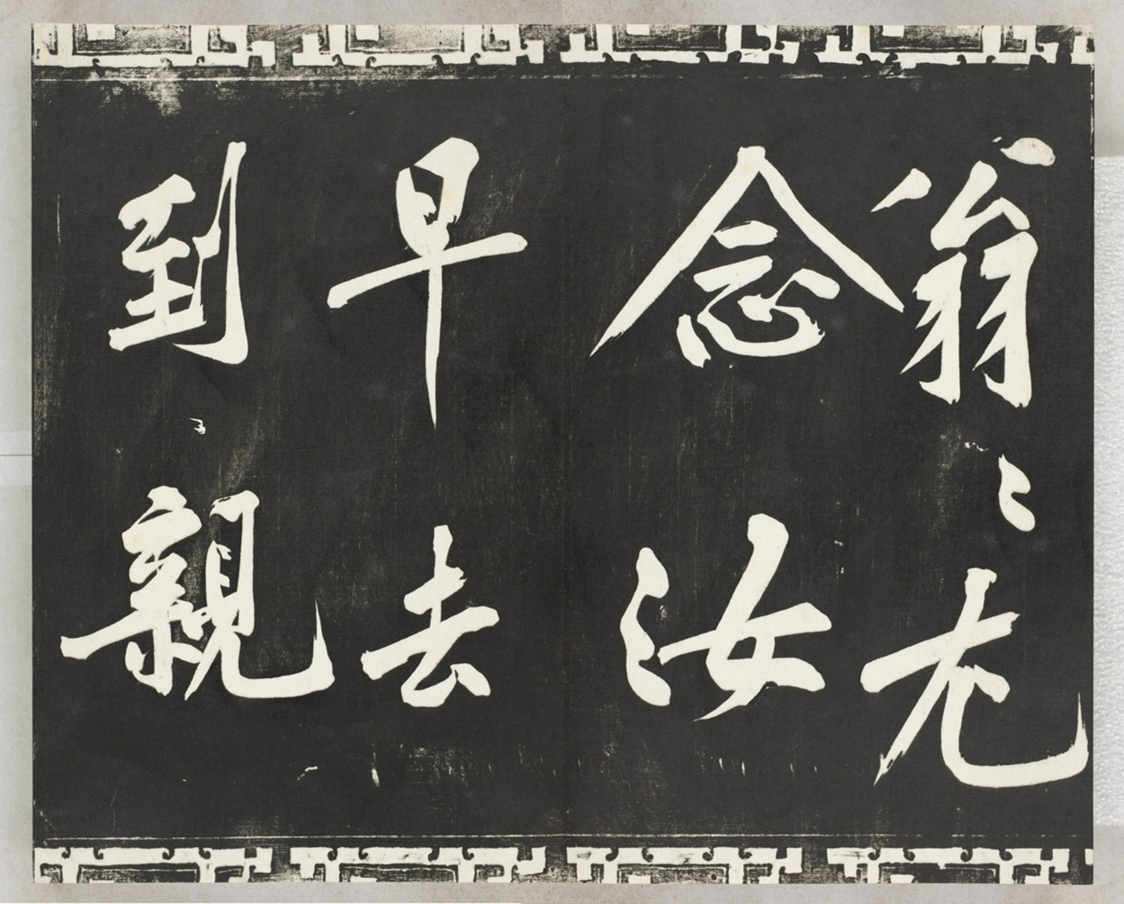 翁〻尤
念汝
早去
到親